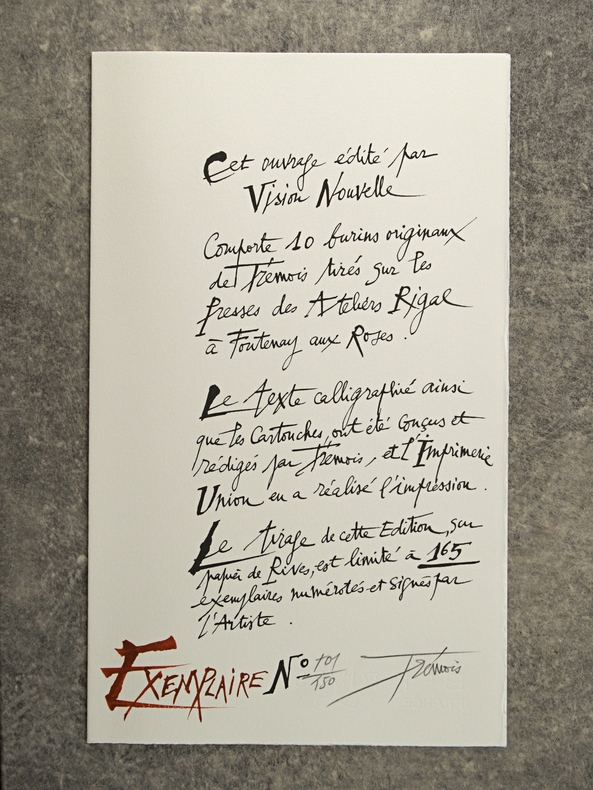 Cet ouvrage édité par
Vision Nouvelle
Comporte 10 burins originaux
de Trémois tirés sur les
Presses des Ateliers Rigal
à Fontenay aux Roses.
Le texte calligraphié ainsi
que les Cartouches, ont été conçus et
rédigés par Trémois, et l'Imprimerie
Union en a réalisé l'impression.
Le tirage de cette Edition, sur
papier de Rives, est limité à 165
exemplaires numérotés et signés par
l'Artiste.
EXEMPLAIRE N° 101/150 Trémois